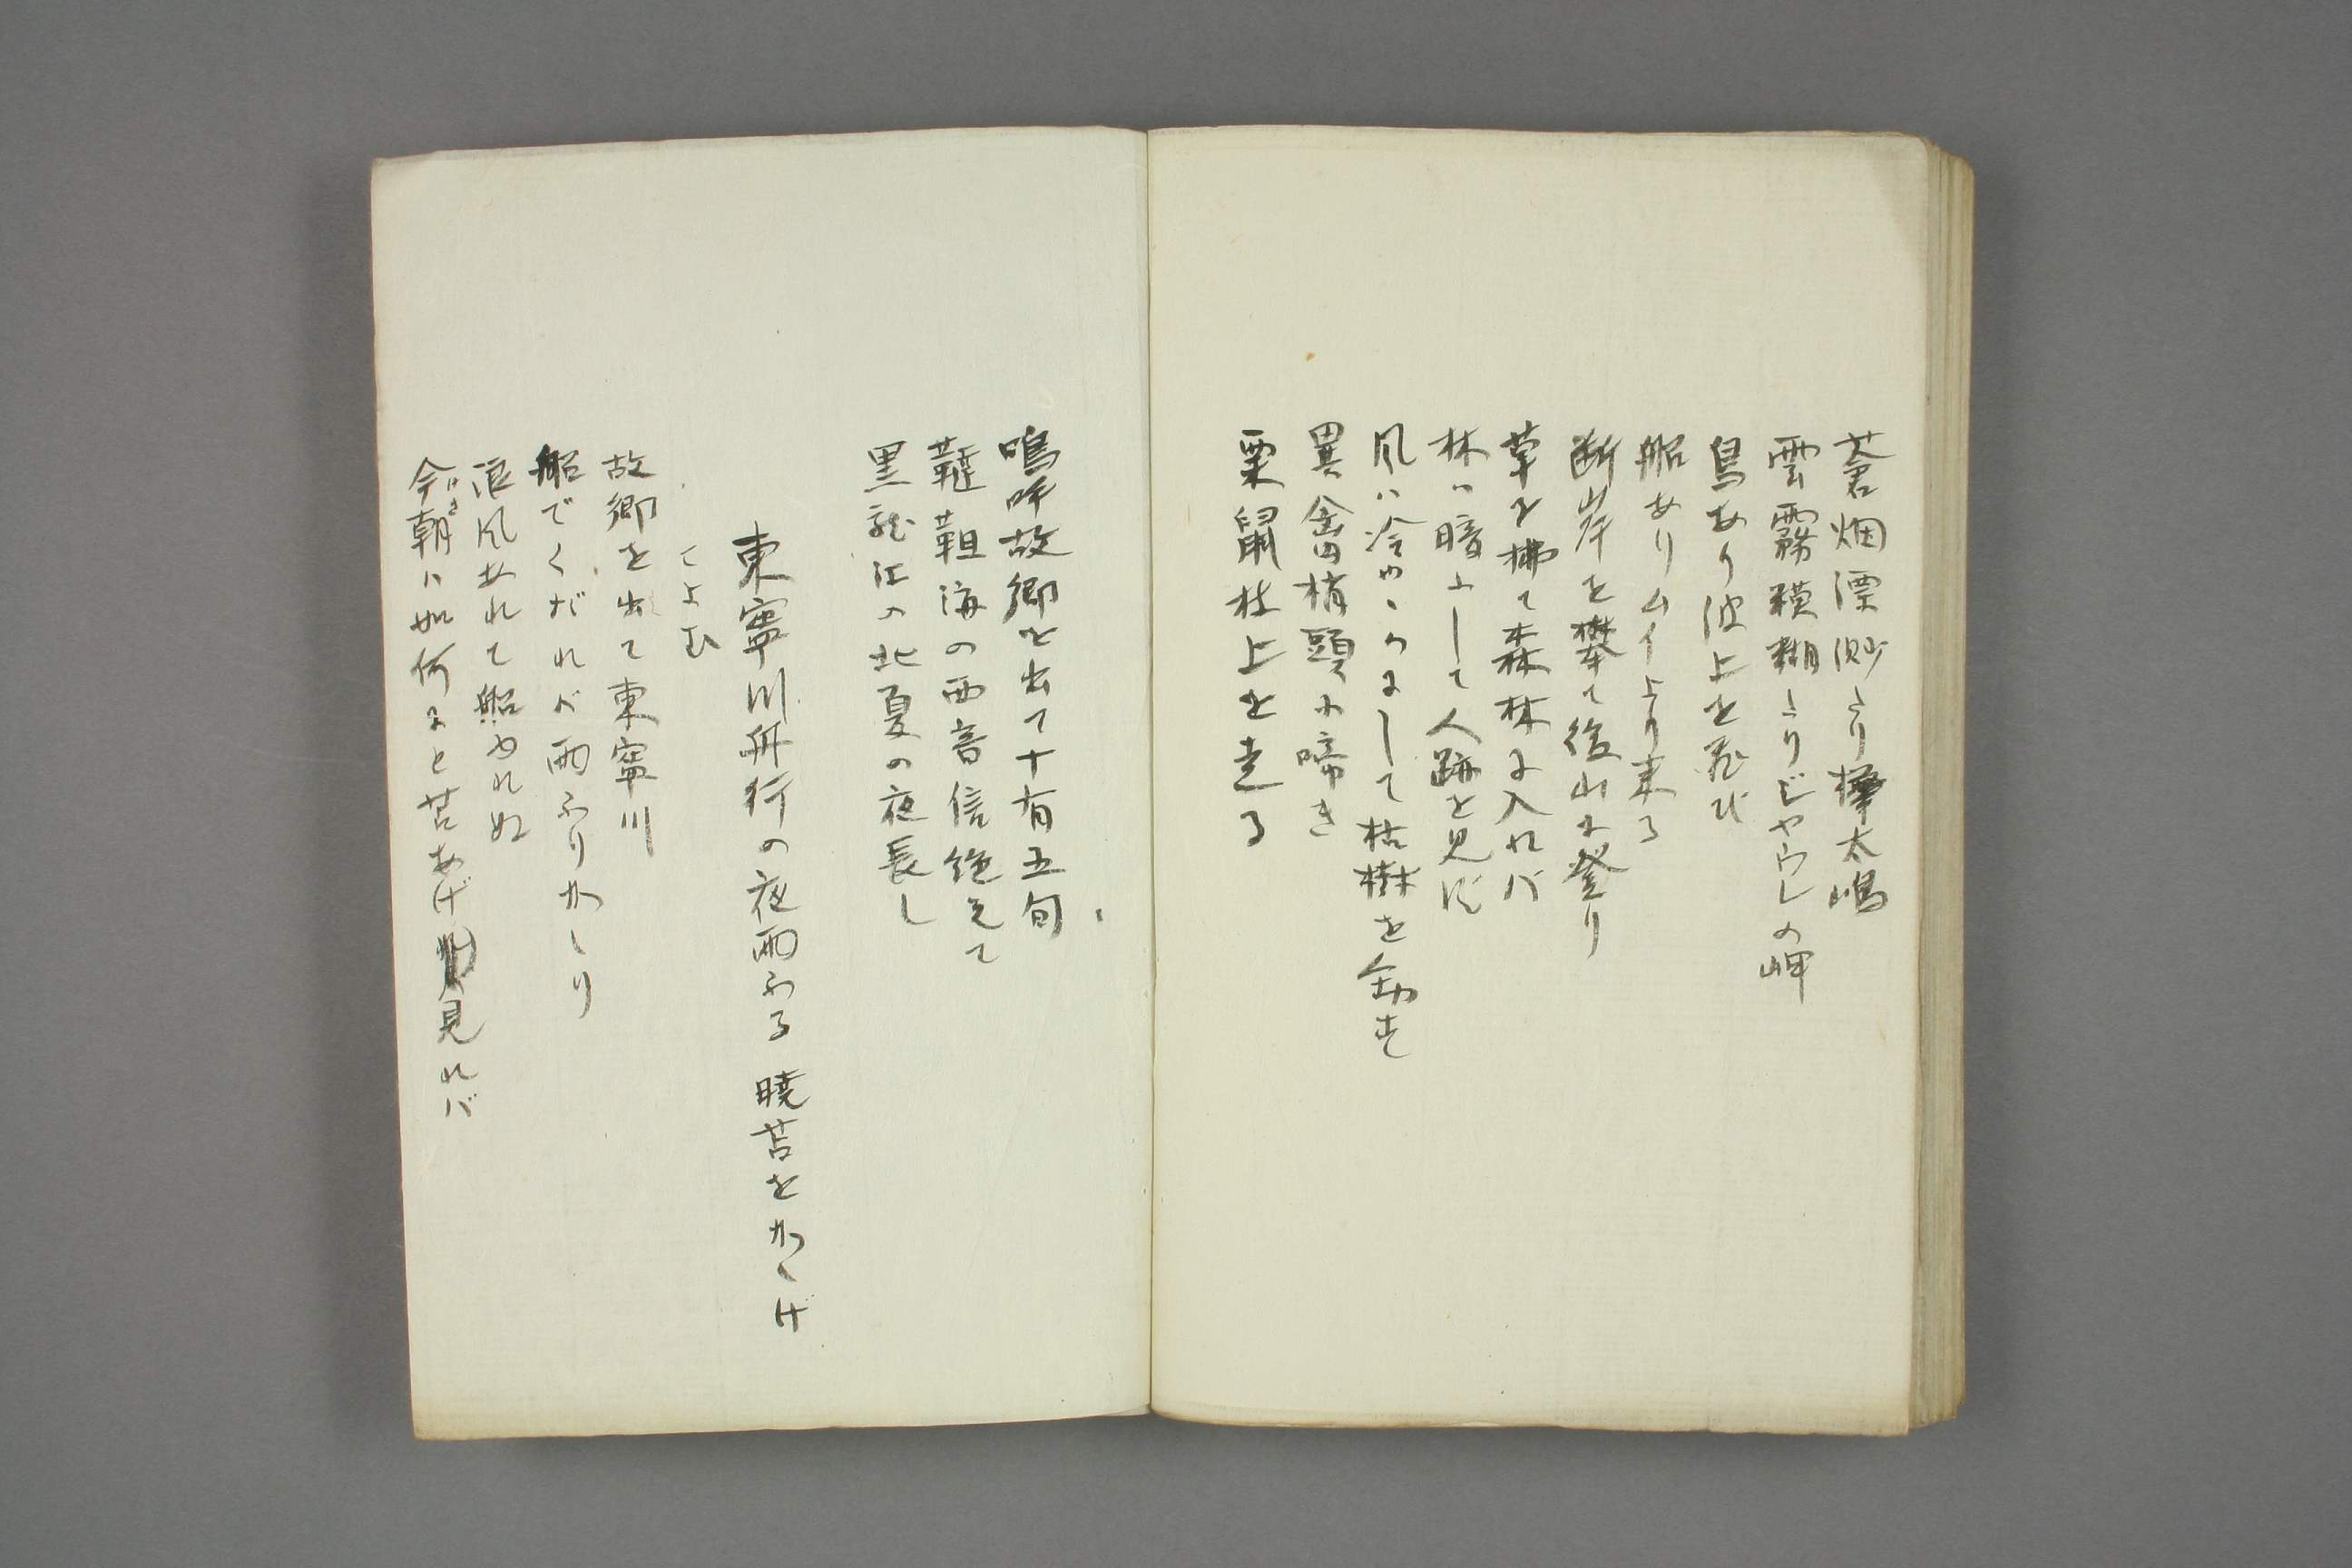 蒼烟漂渺たり樺太嶋
雲霧模糊たりジヤウレの岬
鳥あり波上を飛び
船ありムイより来る
断岸を攀て後山に登り
草を拂て森林に入れバ
林ハ暗ふして人跡を見ず
風ハ冷やゝかにして枯樹を動す
異禽梢頭に啼き
栗鼠枝上を走る
嗚呼故郷を出て十有五旬
韃靼海の西音信絶えて
黒龍江の北夏の夜長し
東寧川舟行の夜雨ふる 暁苫をかゝげ
てよむ
故郷を出て東寧川
船でくだれバ雨ふりかゝり
浪風あれて船やれぬ
今朝ハ如何にと苫あげ見れバ
けさ